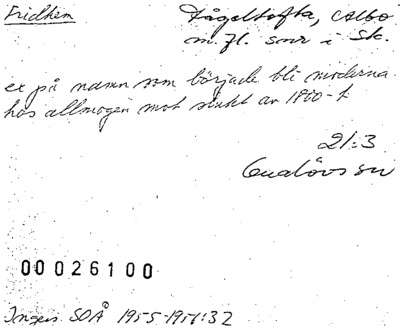 Fridhem
Fågeltofta, Albo
m.fl. snr i Sk.
ex på namn som började bli moderna
hos allmogen mot slutet av 1800-t
21:3
00026100
Ingers SOÅ 1955-1957:32